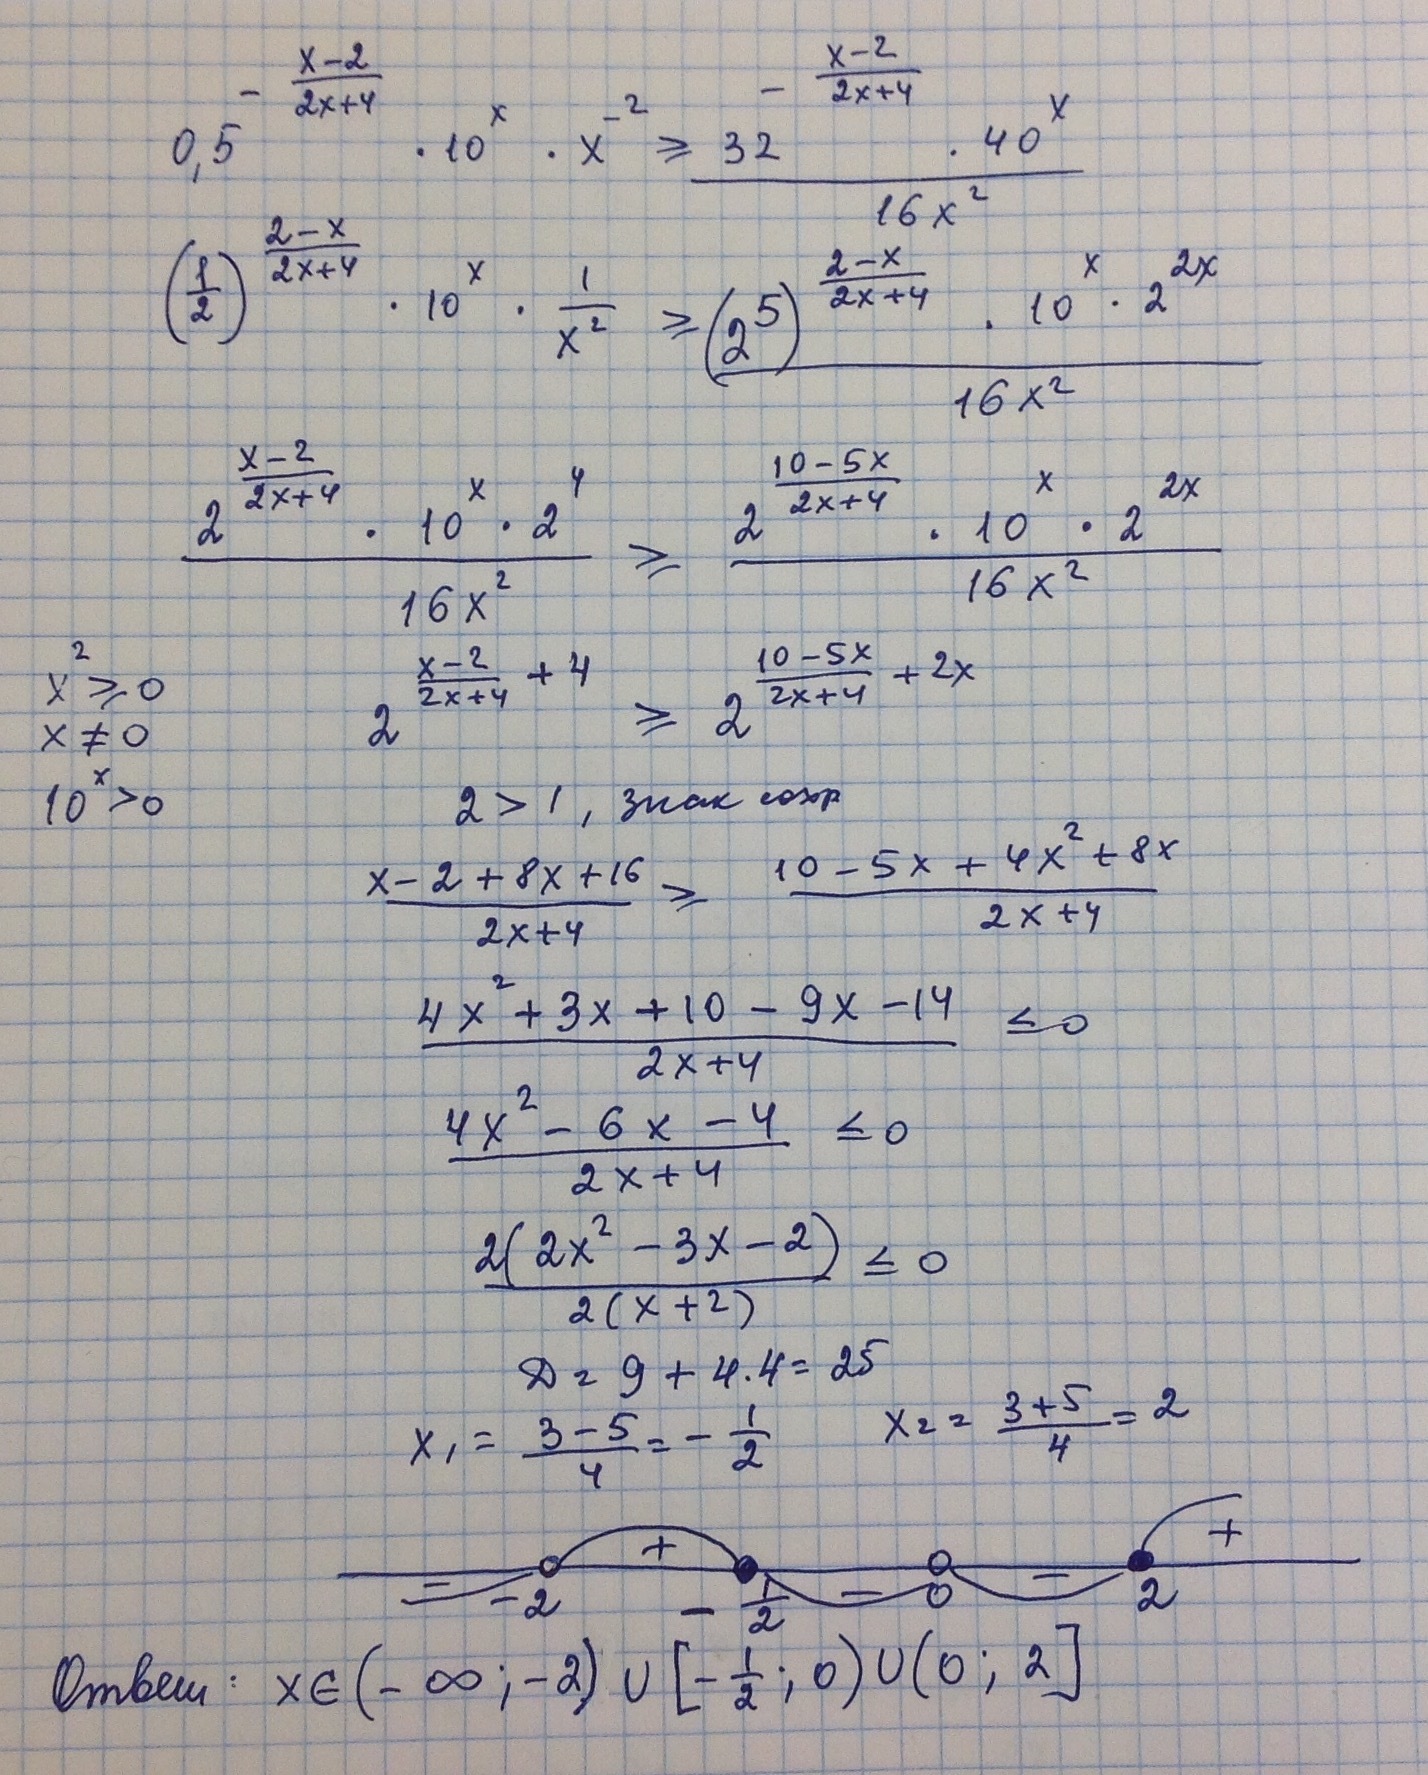 0,5^{-\frac{x-2}{2x+4}} · 10^x · x^{-2} ≥ \frac{32^{-\frac{x-2}{2x+4}} · 40^x}{16x^2}
(\frac{1}{2})^{\frac{2-x}{2x+4}} · 10^x · \frac{1}{x^2} ≥ \frac{(2^5)^{\frac{2-x}{2x+4}} · 10^x · 2^{2x}}{16x^2}
\frac{2^{\frac{x-2}{2x+4}} · 10^x · 2^4}{16x^2} ≥ \frac{2^{\frac{10-5x}{2x+4}} · 10^x · 2^{2x}}{16x^2}
x^2 ≥ 0
x ≠ 0
10^x > 0
2^{\frac{x-2}{2x+4} + 4} ≥ 2^{\frac{10-5x}{2x+4} + 2x}
2 > 1, знак сохр
\frac{x-2+8x+16}{2x+4} ≥ \frac{10-5x+4x^2+8x}{2x+4}
\frac{4x^2+3x+10-9x-14}{2x+4} ≤ 0
\frac{4x^2-6x-4}{2x+4} ≤ 0
\frac{2(2x^2-3x-2)}{2(x+2)} ≤ 0
D = 9 + 4·4 = 25
x_1 = \frac{3-5}{4} = -\frac{1}{2} x_2 = \frac{3+5}{4} = 2
− + − − +
-2 -\frac{1}{2} 0 2
Ответ: x∈(-∞;-2)∪[-\frac{1}{2};0)∪(0;2]